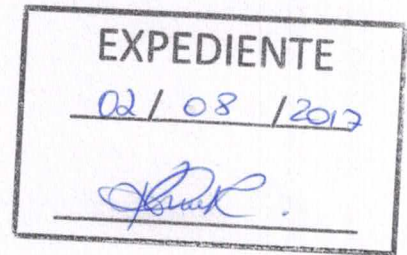 EXPEDIENTE
02 / 08 / 2017